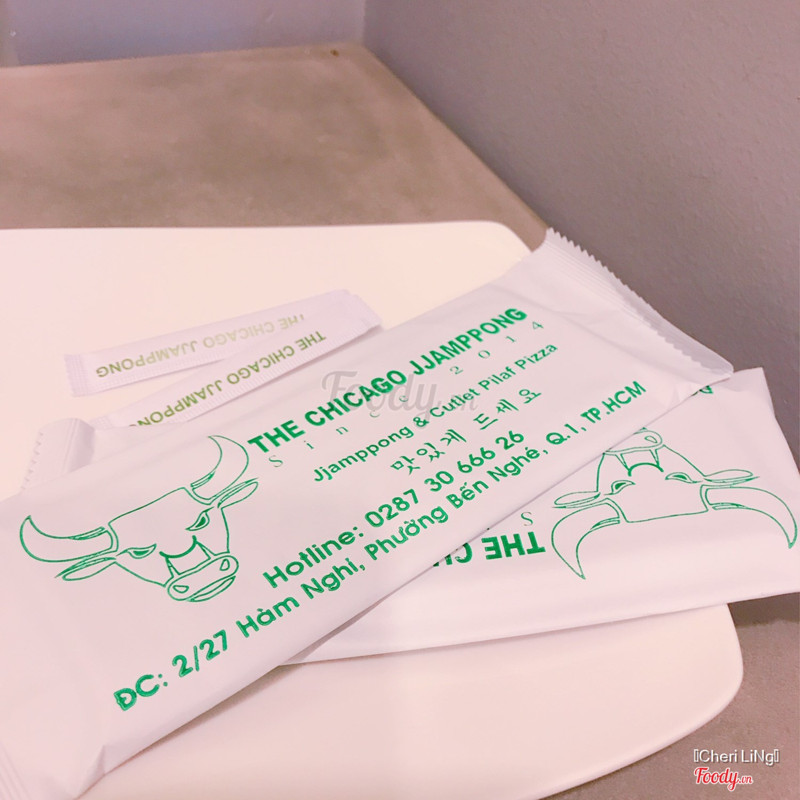 THE CHICAGO JJAMPPONG
THE CHICAGO JJAMPPONG
THE CHICAGO JJAMPPONG
Since 2014
Jjamppong & Cutlet Pilaf Pizza
맛있게 드세요
Hotline: 0287 30 666 26
ĐC: 2/27 Hàm Nghi, Phường Bến Nghé, Q.1, TP.HCM
THE
S
Foody.vn
Cheri LiNg
Foody.vn